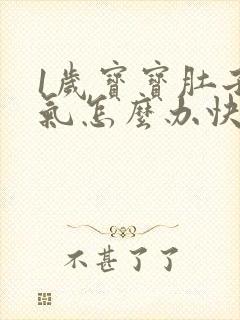 1歲寶寶肚子
氣怎麼办快
不甚了了